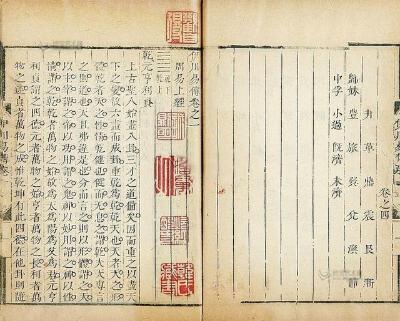 卷之四
升 革 鼎 震 艮 漸
歸妹 豐 旅 巽 兌 渙 節
中孚 小過 既濟 未濟
伊川易傳卷之一
周易上經
乾下
乾上
乾元亨利貞
上古聖人始畫八卦三才之道備矣因而重之以盡天
下之變故六畫而成卦重乾爲乾乾天也天者天之形
體乾者天之性情乾健也健而无息之謂乾夫天專言
之則道也天且弗違是也分而言之則以形體謂之天
以主宰謂之帝以功用謂之鬼神以妙用謂之神以性
情謂之乾乾者萬物之始故爲天爲陽爲父爲君元亨
利貞謂之四德元者萬物之始亨者萬物之長利者萬
物之遂貞者萬物之成惟乾坤有此四德在他卦則隨